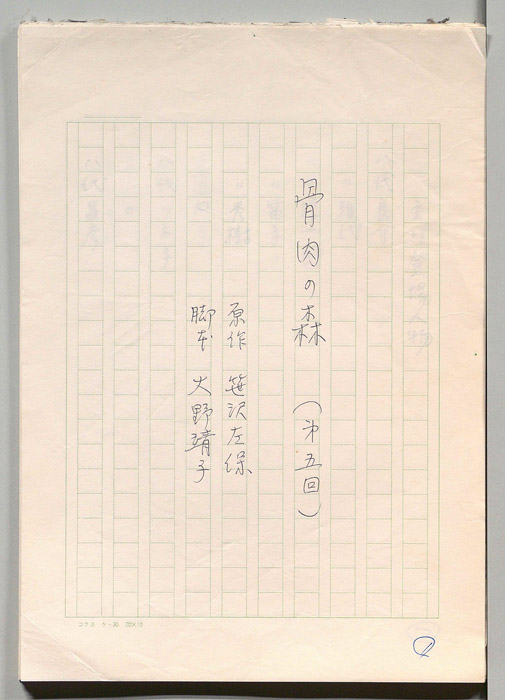 骨肉の森　（第五回）
原作　笹沢左保
脚本　大野靖子
コクヨ　ケ-30　20×10